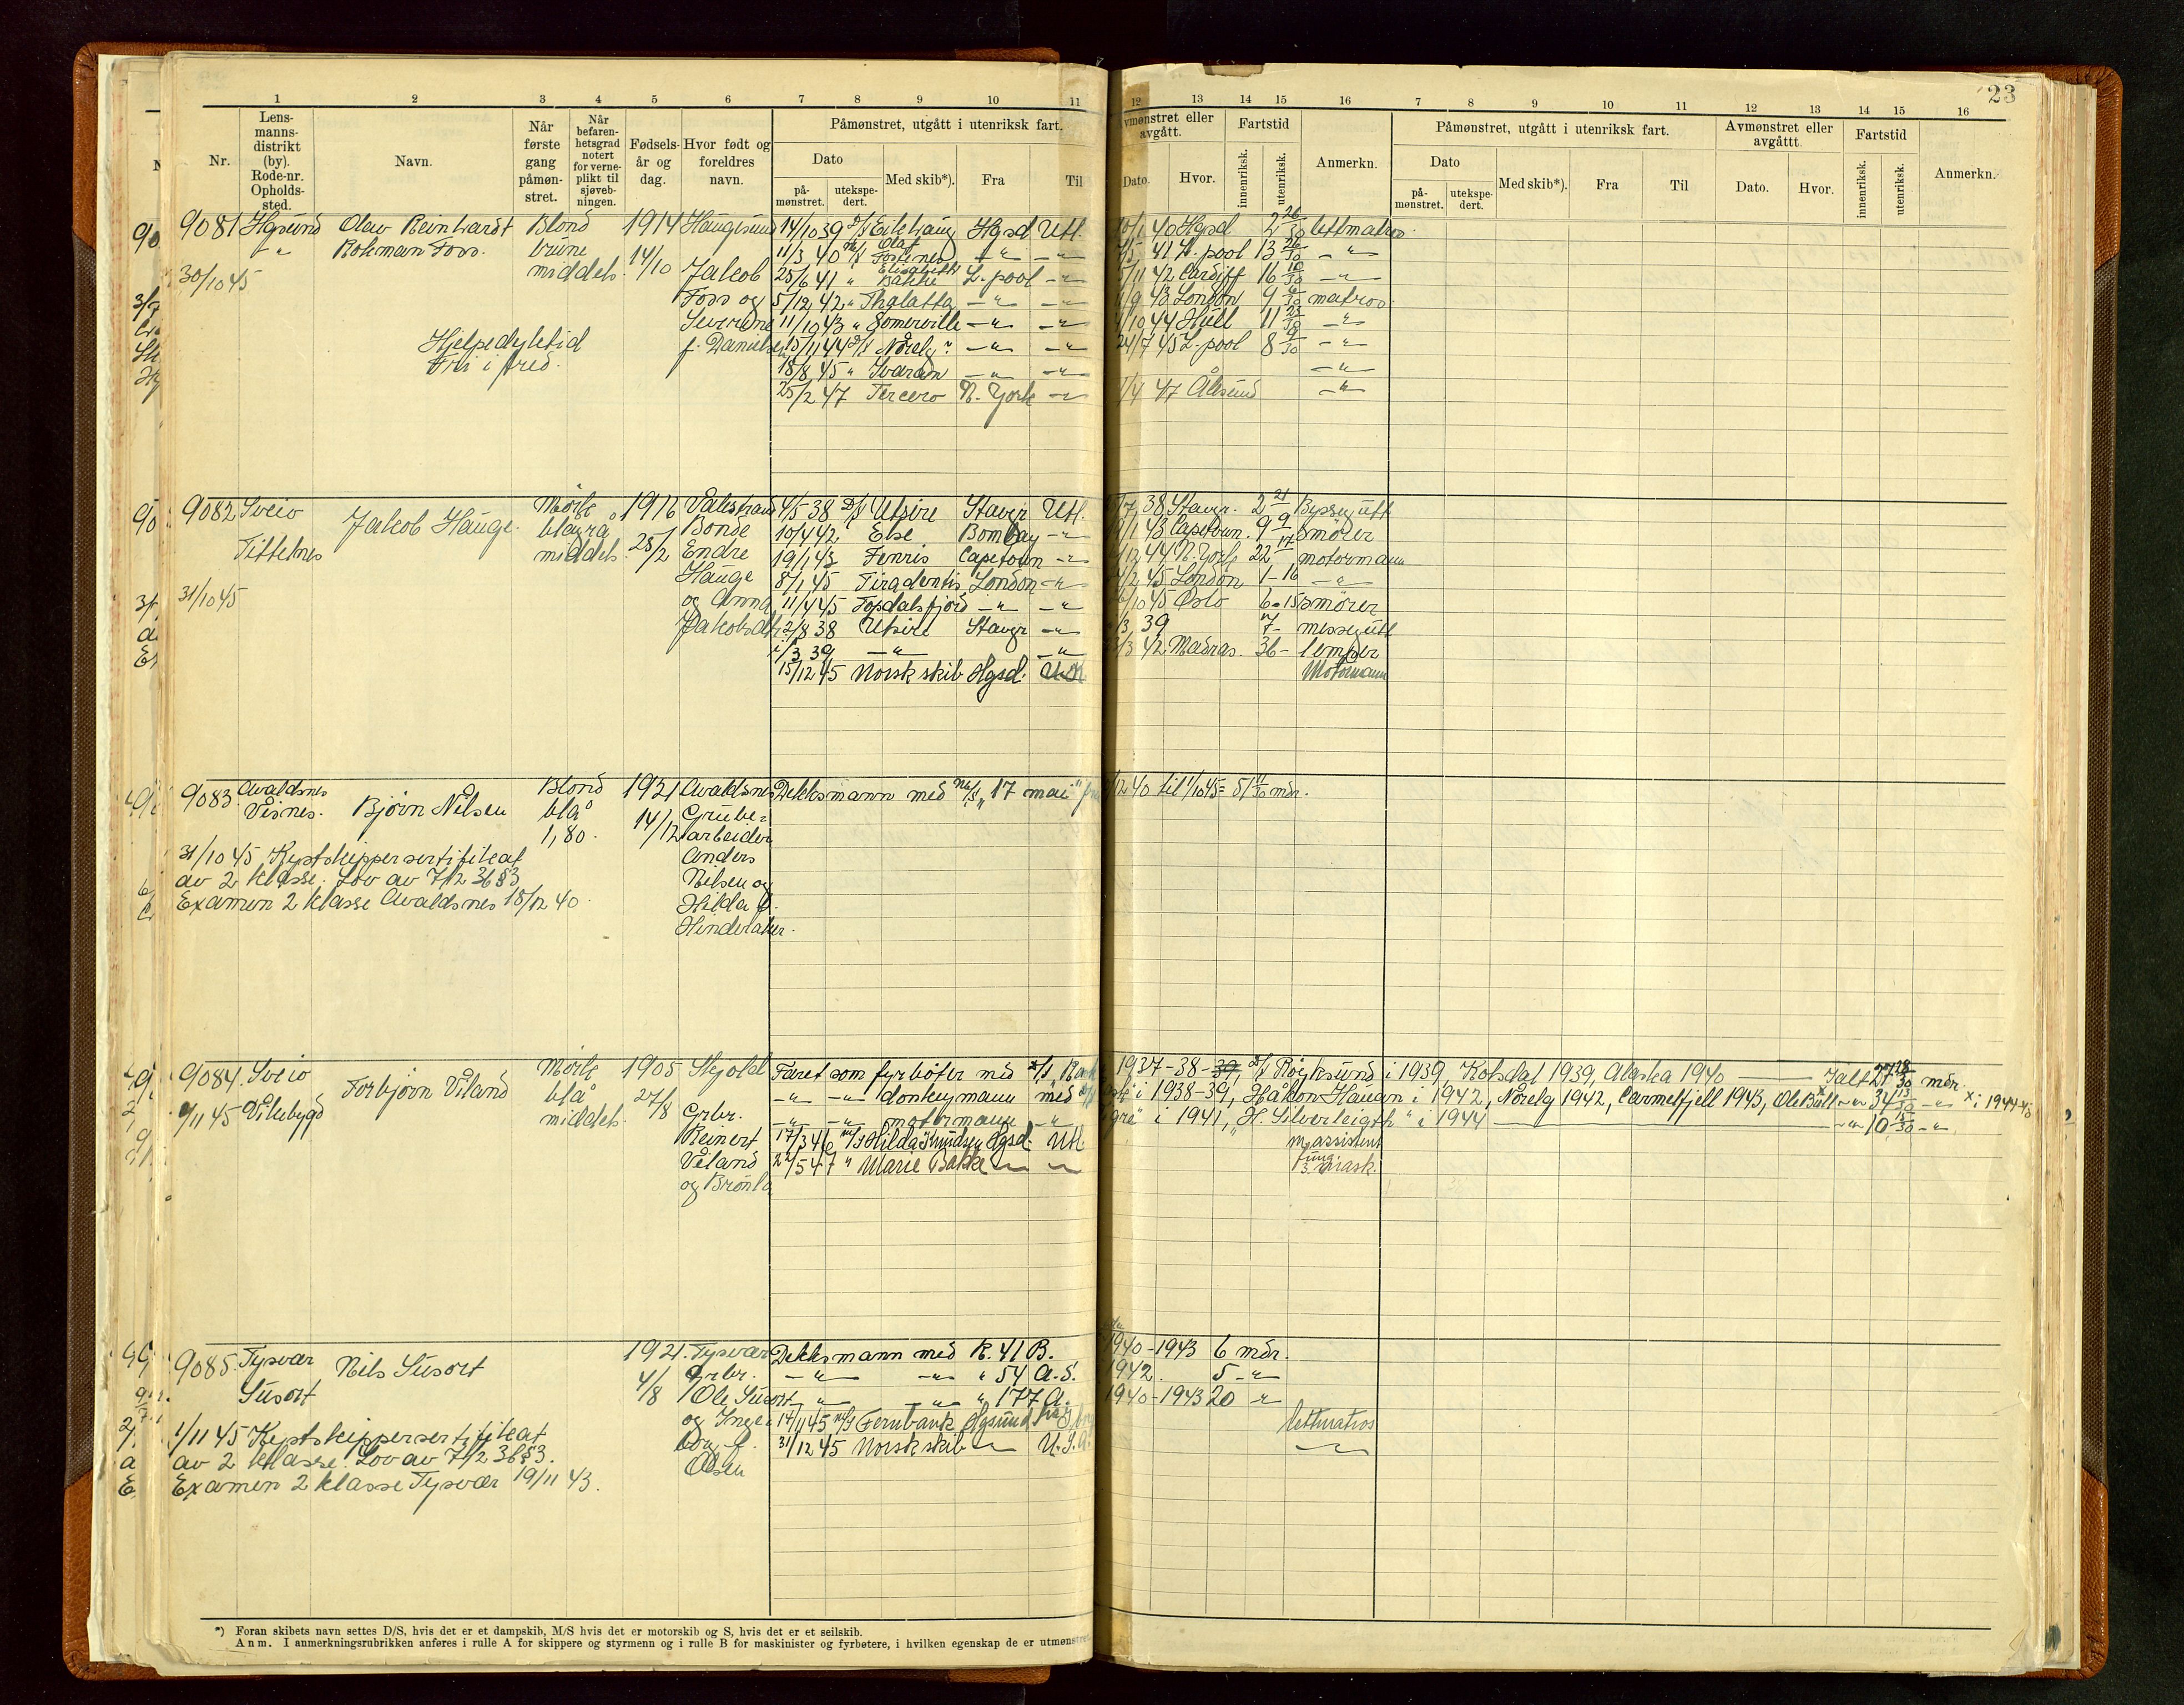 23
1 2 3 4 5 6 7 8 9 10 11 12 13 14 15 16 7 8 9 10 11 12 13 14 15 16
Nr.
Lens-
manns-
distrikt
(by).
Rode-nr.
Opholds-
sted.
Navn.
Når
første
gang
påmøn-
stret.
Når
befaren-
hetsgrad
notert
for verne-
plikt til
sjøveb-
ningen.
Fødsels-
år og
dag.
Hvor født og
foreldres
navn.
Påmønstret, utgått i utenriksk fart.
Dato
på-
mønstret.
utekspe-
dert.
Med skib*).
Fra
Til
vmønstret eller
avgått.
Dato.
Hvor.
Fartstid
innenriksk.
utenriksk.
Anmerkn.
Påmønstret, utgått i utenriksk fart.
Dato
på-
mønstret.
utekspe-
dert.
Med skib*).
Fra
Til
Avmønstret eller
avgåttt.
Dato.
Hvor.
Fartstid
innenriksk.
utenriksk.
Anmerkn.
9081 Hgsund Olav Reinhardt Blond 1914 Haugesund 14/10 39 D/S Eikhaug Hgsd Utl. 10/1 40 Hgsd 2 26/30 lettmatros
-"- Rohman Foss. brune 14/10 11/3 40 M/S Olaf Fostenes -"- -"- /5 41 L.pool 13 26/30 -"-
30/10 45 middels Jakob 25/6 41 " Elisabeth Bakke L.pool -"- 5/11 42 Cardiff 16 10/30 -"-
Foss og 5/12 42 " Thalatta -"- -"- /9 43 London 9 /30 matros
Severine 11/10 43 " Somerville -"- -"- /10 44 Hull 11 23/30 -"-
Hjelpedyktid f. Danielsen 15/11 44 D/S Norelg -"- -"- 24/7 45 L.pool 8 9/30 -"-
Fri i fred. 18/8 45 " Svaran -"- -"- -"-
25/2 47 Tercero N. York -"- /4 47 Ålesund -"-
9082 Sveio Jakob Hauge. Mørk 1916 Valestrand 4/5 38 D/S Utsire Stavgr Utl. /7 38 Stavgr. 2 21 Byssegutt
Tittelnes blagrå 28/2 Bonde 10/4 42 Else Bombay -"- /1 43 Capetown. 9 9 smører
middels Endre 19/1 43 Fenris Capetown -"- /12 44 N. York 22 17 motormann
Hauge 8/1 45 Tiradentis London -"- /2 45 London 1-16 -"-
31/10 45 og Anna 11/4 45 Topdalsfjord -"- -"- /10 45 Oslo 6-15 smører
Jakobsdtr 2/8 38 Utsire Stavgr -"- /3 39 7- messegutt
/3 39 -"- -"- /3 42 Madras. 36- lemper
15/12 45 Norsk skib Hgsd. Motormann
9083 Avaldsnes Blond 1921 Avaldsnes Dekksmann med M/S "17 mai" fra /12 40 til 1/10 45 = 51 11/30 mdr.
Visnes. Bjørn Nilsen blå 14/12 Grube-
1,80. arbeider
31/10 45 Kystskippersertifikat Anders
av 2 klasse. Lov av 7/2 36 §3 Nilsen og
Examen 2 klasse Avaldsnes 18/12 40. Hilda f.
Hinderaker.
9084 Sveio Torbjørn Våland Mørk 1905 Skjold Faret som fyrbøter med D/S Rak 1937-38-39, D/S Røyksund i 1939, Kolsdal 1939, Alaska 1940 —— Ialt 27 28/30 mdr.
1/11 45 Vikebygd blå 27/8 Grbr. -"- -"- donkeymann med i 1938-39, Håkon Hauan i 1942, Norelg 1942, Carmelfjell 1943, Ole Bull -"- 34 13/30 -"- x i 1944-45
middels. -"- -"- motormann -"- i 1941, "H. Silverleigth" i 1944 —— -"- 10 15/30 -"-
Reinert 17/3 46 M/S Hilda Knudsen Hgsd. Utl m. assistent
Våland 22/5 47 " Marie Bakke -"- -"- fung. 3. mask.
og Bronla
9085 Tysvær Nils Susort 1921 Tysvær Dekksmann med R. 41 B. 1940-1943 6 mdr.
Susort 4/8 Grbr. -"- -"- " 54 A.S. 1942. 5 -"-
Ole Susort -"- -"- " 177 A. 1940-1943 20 -"-
1/11 45 Kystskippersertifikat og Inge- 17/11 45 M/S Fernbank Hgsund lettmatros
av 2 klasse. Lov av 7/2 36 §3. borg f. 31/12 45 Norsk skib -"- U.S.A. -"-
Examen 2 klasse Tysvær 19/11 43. Olsen
*) Foran skibets navn settes D/S, hvis det er et dampskib, M/S hvis det er motorskib og S, hvis det er et seilskib.
Anm. I anmerkningsrubrikken anføres i rulle A for skippere og styrmenn og i rulle B for maskinister og fyrbøtere, i hvilken egenskap de er utmønstret